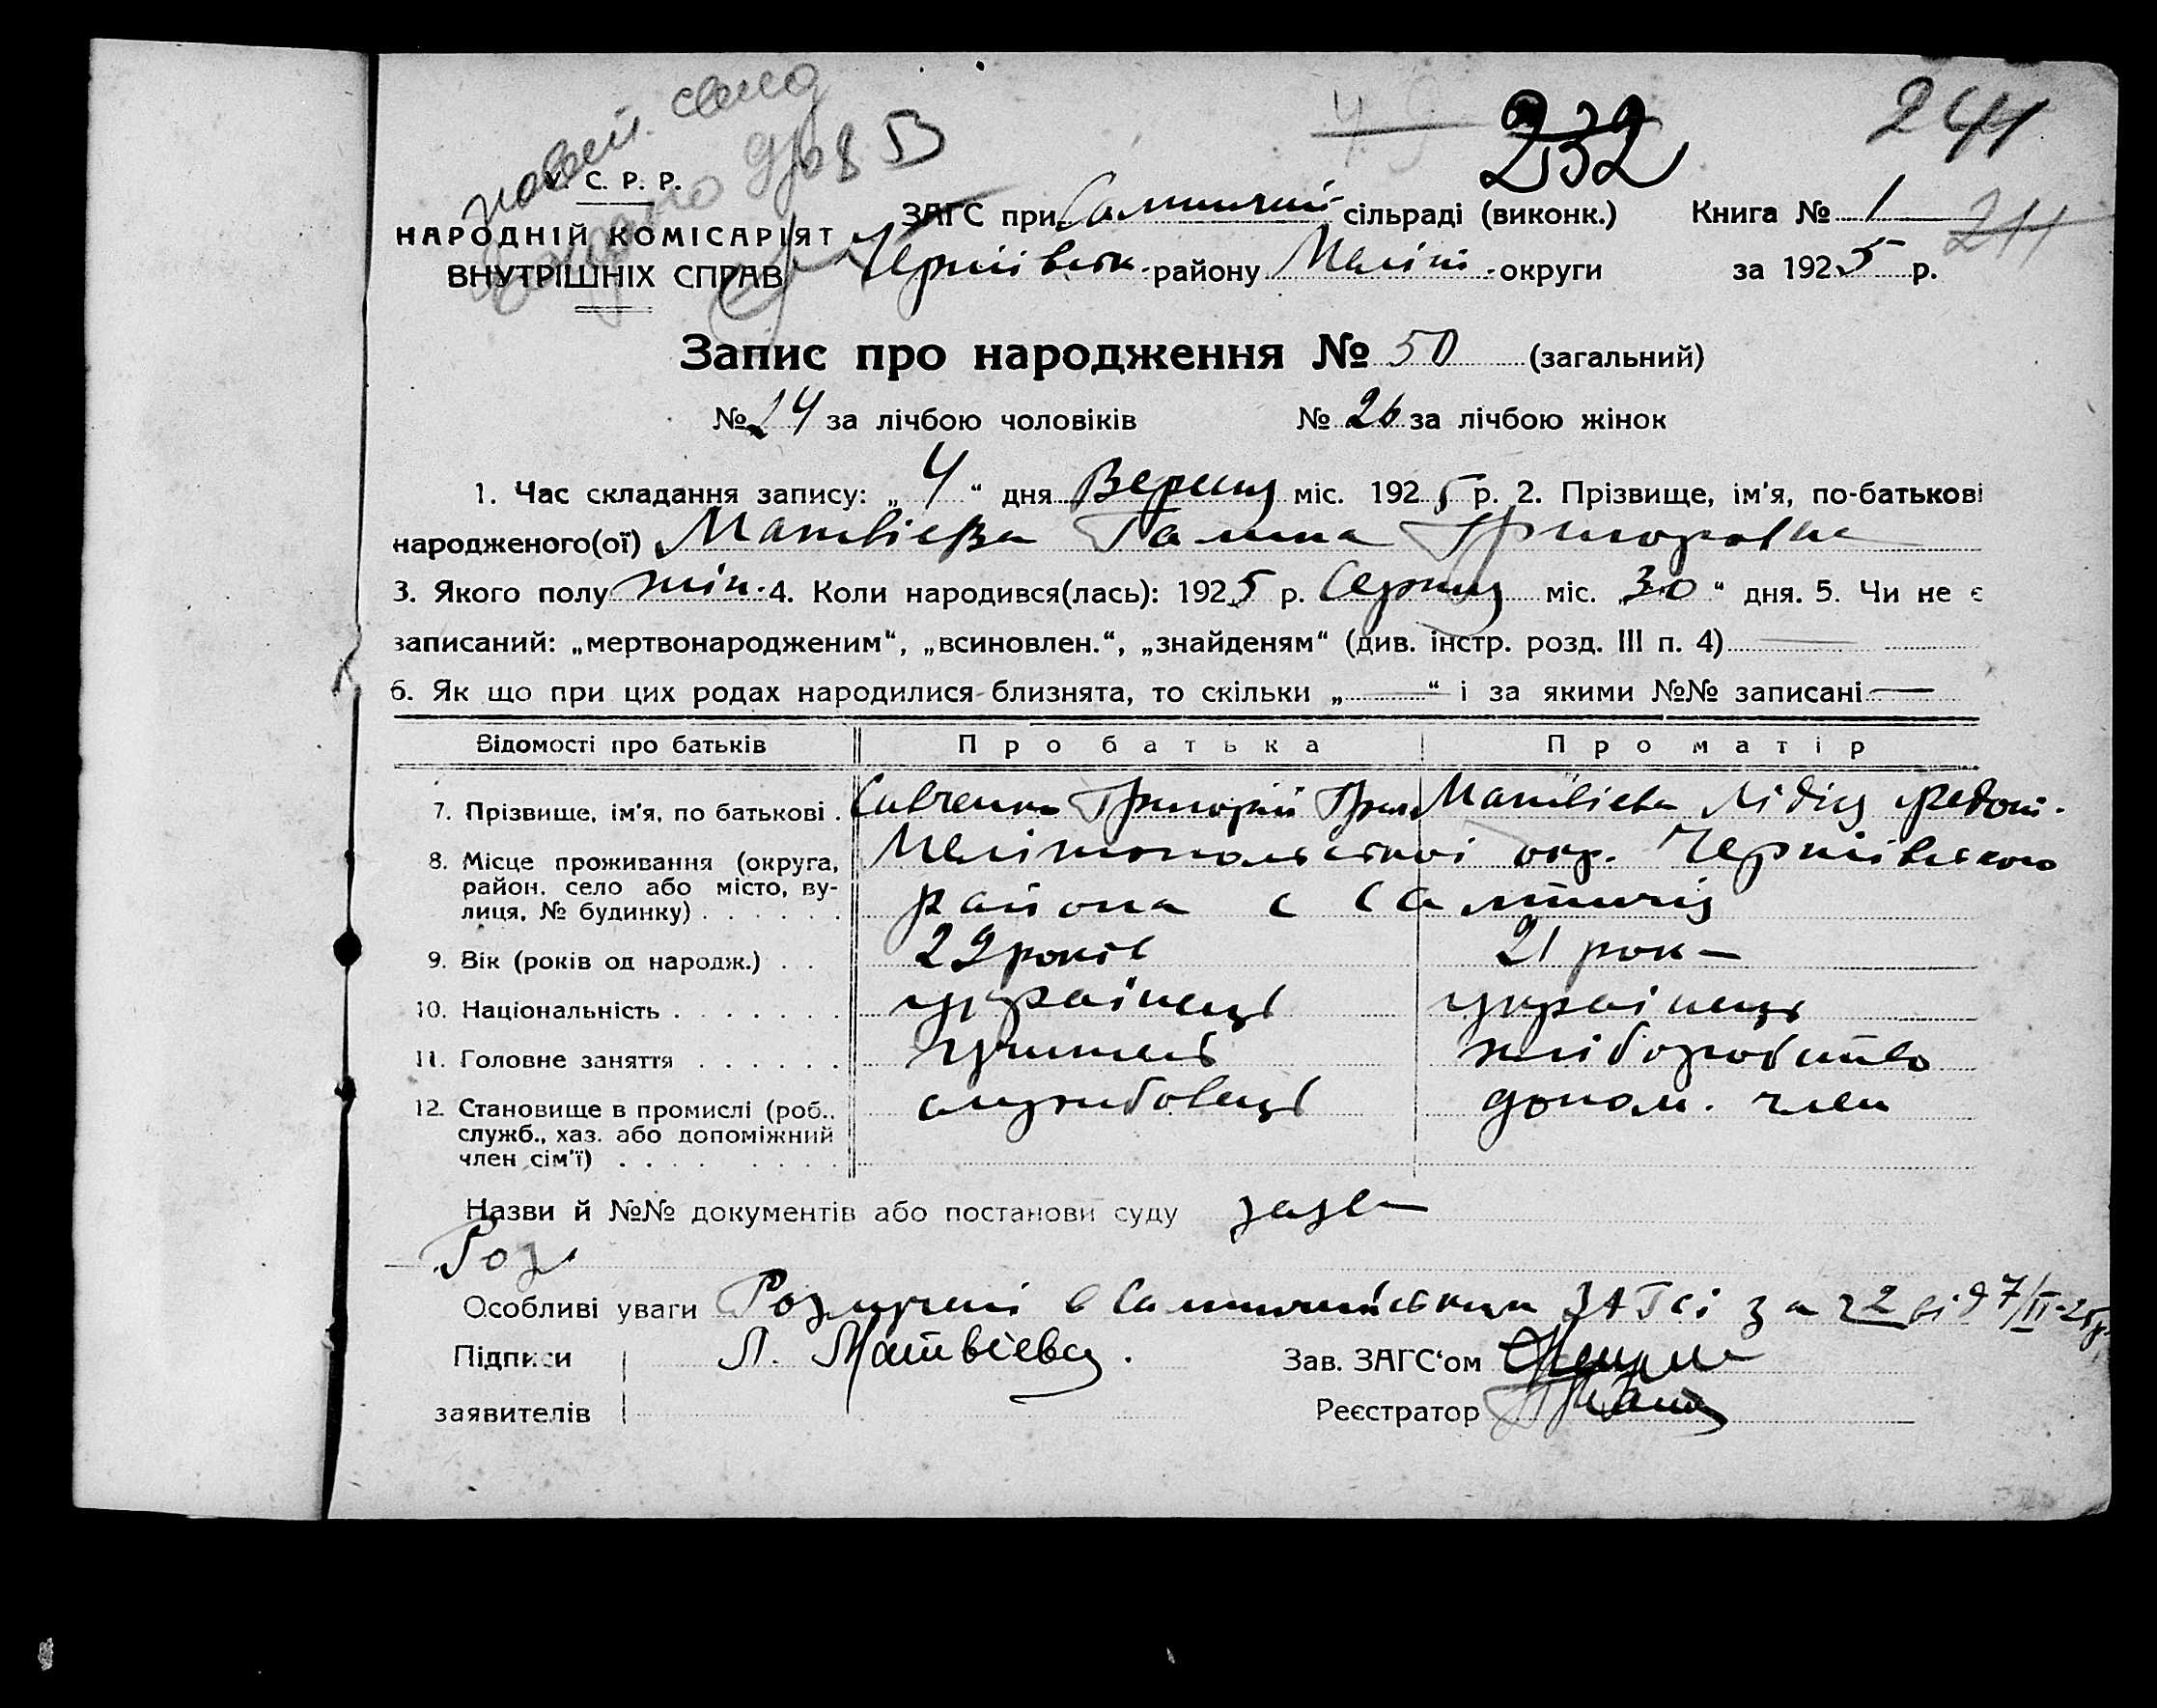 повт. свид
видано
232
244
У. С. Р. Р.
НАРОДНІЙ КОМІСАРІЯТ
ВНУТРІШНІХ СПРАВ
ЗАГС при сільраді (виконк.) Книга № 1 211
Чернігівськ. району Меліт. округи за 1925 р.
Запис про народження № 50 (загальний)
№ 24 за лічбою чоловіків № 26 за лічбою жінок
1. Час складання запису: „ 4 “ дня Вересня міс. 1925 р. 2. Прізвище, ім'я, по-батькові
народженого(ої) Матвієва Галина Григоровна
3. Якого полу жін. 4. Коли народився(лась): 1925 р. Серпня міс. „30“ дня. 5. Чи не є
записаний: „мертвонародженим“, „всиновлен.“, „знайденям“ (див. інстр. розд. III п. 4) —
6. Як що при цих родах народилися близнята, то скільки „—“ і за якими №№ записані —
Відомості про батьків Про батька Про матір
7. Прізвище, ім'я, по батькові . Савченко Григорій Григ. Матвієва Лідія Федот.
8. Місце проживання (округа, Мелітопольської окр. Чернігівського
район, село або місто, ву-
лиця, № будинку) . . . . . . района с Салтичія
9. Вік (років од народж.) . . 22 років 21 рок —
10. Національність . . . . . . . українець українець
11. Головне заняття . . . . . . учитель хліборобство
12. Становище в промислі (роб., службовець допом. член
служб., хаз. або допоміжний
член сім'ї) . . . . . . . .
Назви й №№ документів або постанови суду заява
Роз
Особливі уваги Розлучені в ЗАГСі за 2 від 7/II-25р.
Підписи Л. Матвієва. Зав. ЗАГС‘ом
заявителів Реєстратор